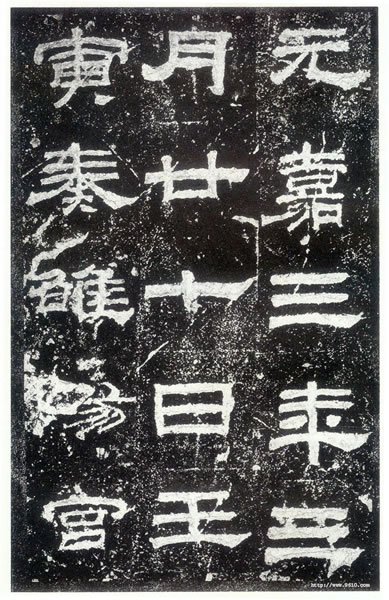 元嘉三年三
月廿七日壬
寅奏雒陽宫
http://www.9610.com